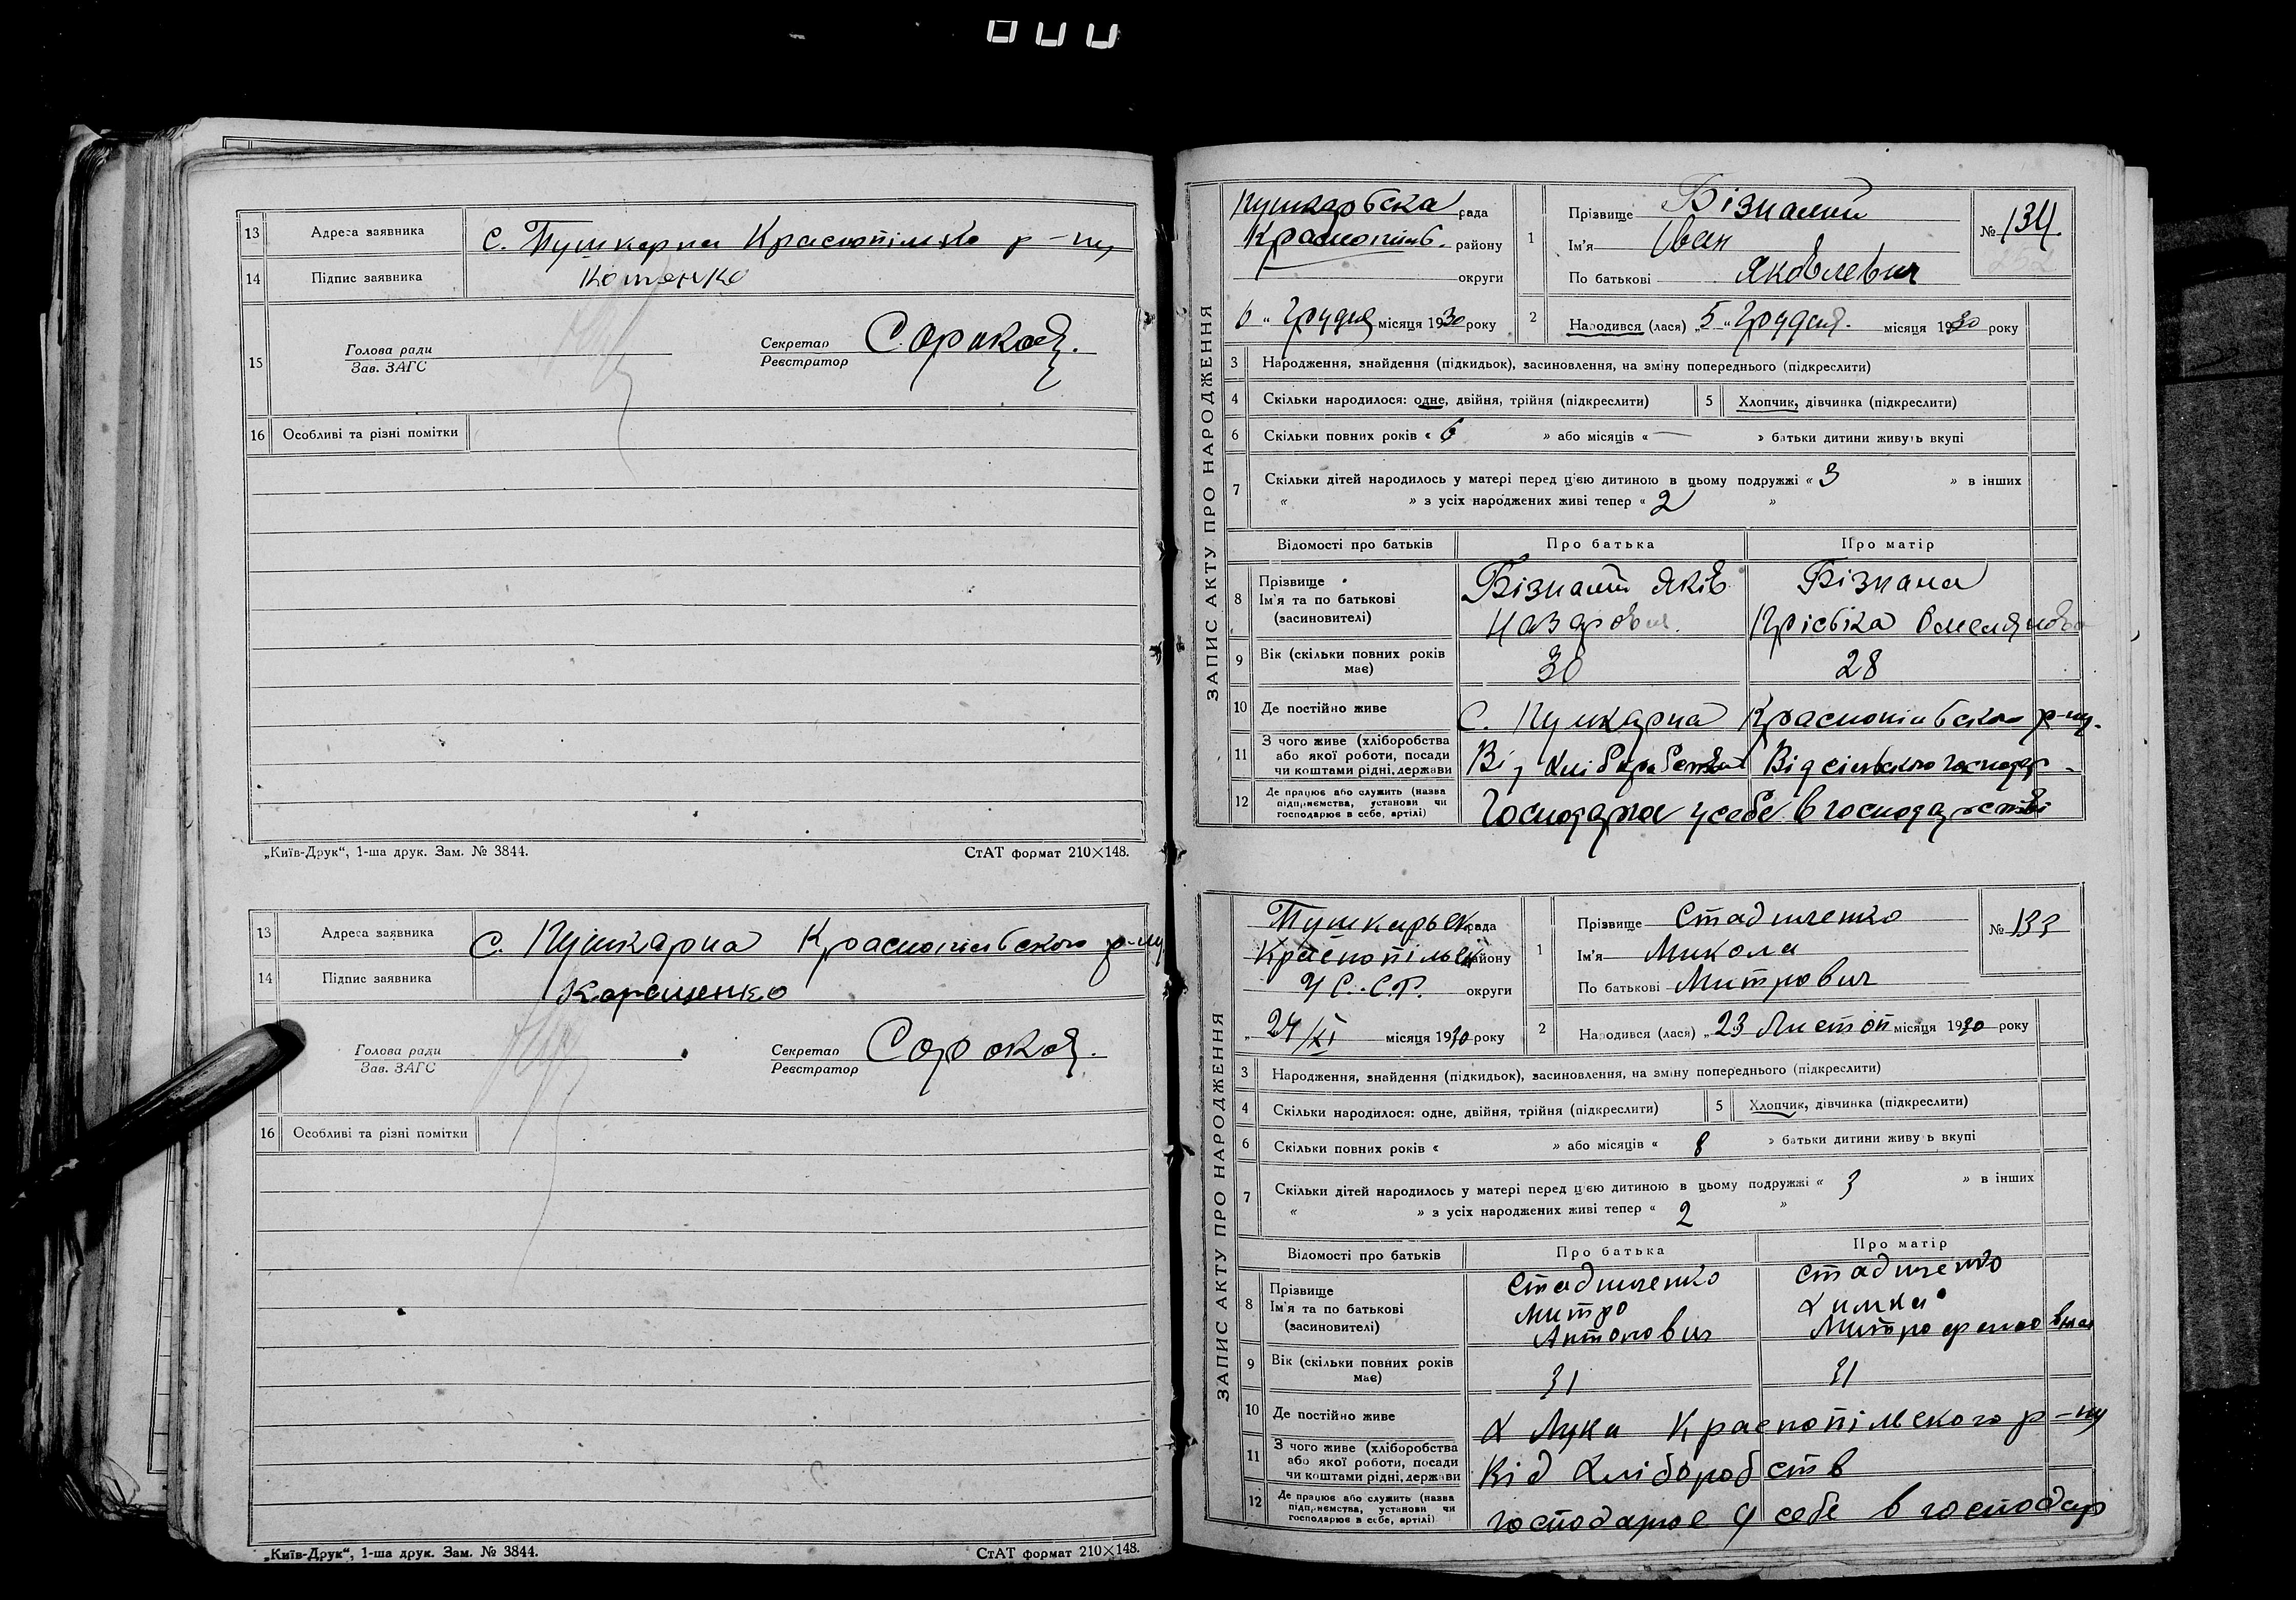 13 Адреса заявника С. Пушкарна Краснопільсько р-ну
14 Підпис заявника Котенко
15 Голова ради
Зав. ЗАГС
Секретар
Реєстратор
Сорокая.
16 Особливі та різні помітки
„Київ-Друк“, 1-ша друк. Зам. № 3844. СтАТ формат 210×148.
13 Адреса заявника С. Пушкарна Краснопільського р-ну
14 Підпис заявника
Голова ради
Зав. ЗАГС
Секретар
Реєстратор
Сорокая.
16 Особливі та різні помітки
„Київ-Друк“, 1-ша друк. Зам. № 3844. СтАТ формат 210×148.
ЗАПИС АКТУ ПРО НАРОДЖЕННЯ
Пушкарьска рада
Краснопільс. району
округи
6 „ Грудня місяця 1930 року
1 Прізвище Бізнаний
Ім'я Іван
По батькові Яковлевич
№ 134.
2 Народився (лася) „ 5 “ Грудня. місяця 1930 року
3 Народження, знайдення (підкидьок), засиновлення, на зміну попереднього (підкреслити)
4 Скільки народилося: одне, двійня, трійня (підкреслити) 5 Хлопчик, дівчинка (підкреслити)
6 Скільки повних років « 6 » або місяців « — » батьки дитини живуть вкупі
7 Скільки дітей народилось у матері перед цією дитиною в цьому подружжі « 3 » в інших
« » з усіх народжених живі тепер « 2 »
Відомості про батьків Про батька Про матір
8 Прізвище
Ім'я та по батькові
(засиновителі)
Бізнаний Яків
Назарович.
Бізнана
Прісьіка Омелянова
9 Вік (скільки повних років має) 30 28
10 Де постійно живе С. Пушкарна Краснопільсько р-ну.
11 З чого живе (хліборобства
або якої роботи, посади
чи коштами рідні, держави
Від хліборобства Від сільского господар
12 Де працює або служить (назва
підприємства, установи чи
господарює в себе, артілі)
Господарює у себе в господарстві
ЗАПИС АКТУ ПРО НАРОДЖЕННЯ
Пушкарьск рада
Краснопільск району
У С.С.Р. округи
„ 24/XI місяця 1930 року
1 Прізвище Стадниченко
Ім'я Микола
По батькові Митрович
№ 133
2 Народився (лася) „ 23 Листоп місяця 1930 року
3 Народження, знайдення (підкидьок), засиновлення, на зміну попереднього (підкреслити)
4 Скільки народилося: одне, двійня, трійня (підкреслити) 5 Хлопчик, дівчинка (підкреслити)
6 Скільки повних років « » або місяців « 8 » батьки дитини живуть вкупі
7 Скільки дітей народилось у матері перед цією дитиною в цьому подружжі « 3 » в інших
« » з усіх народжених живі тепер « 2 »
Відомості про батьків Про батька Про матір
8 Прізвище
Ім'я та по батькові
(засиновителі)
Стадниченко
Митро
Антонович
Стадниченко
Химка
Митрофановна
9 Вік (скільки повних років має) 31 31
10 Де постійно живе х Лука Краснопільского р-ну
11 З чого живе (хліборобства
або якої роботи, посади
чи коштами рідні, держави
Від хліборобств
12 Де працює або служить (назва
підприємства, установи чи
господарює в себе, артілі)
господарює у себе в господар